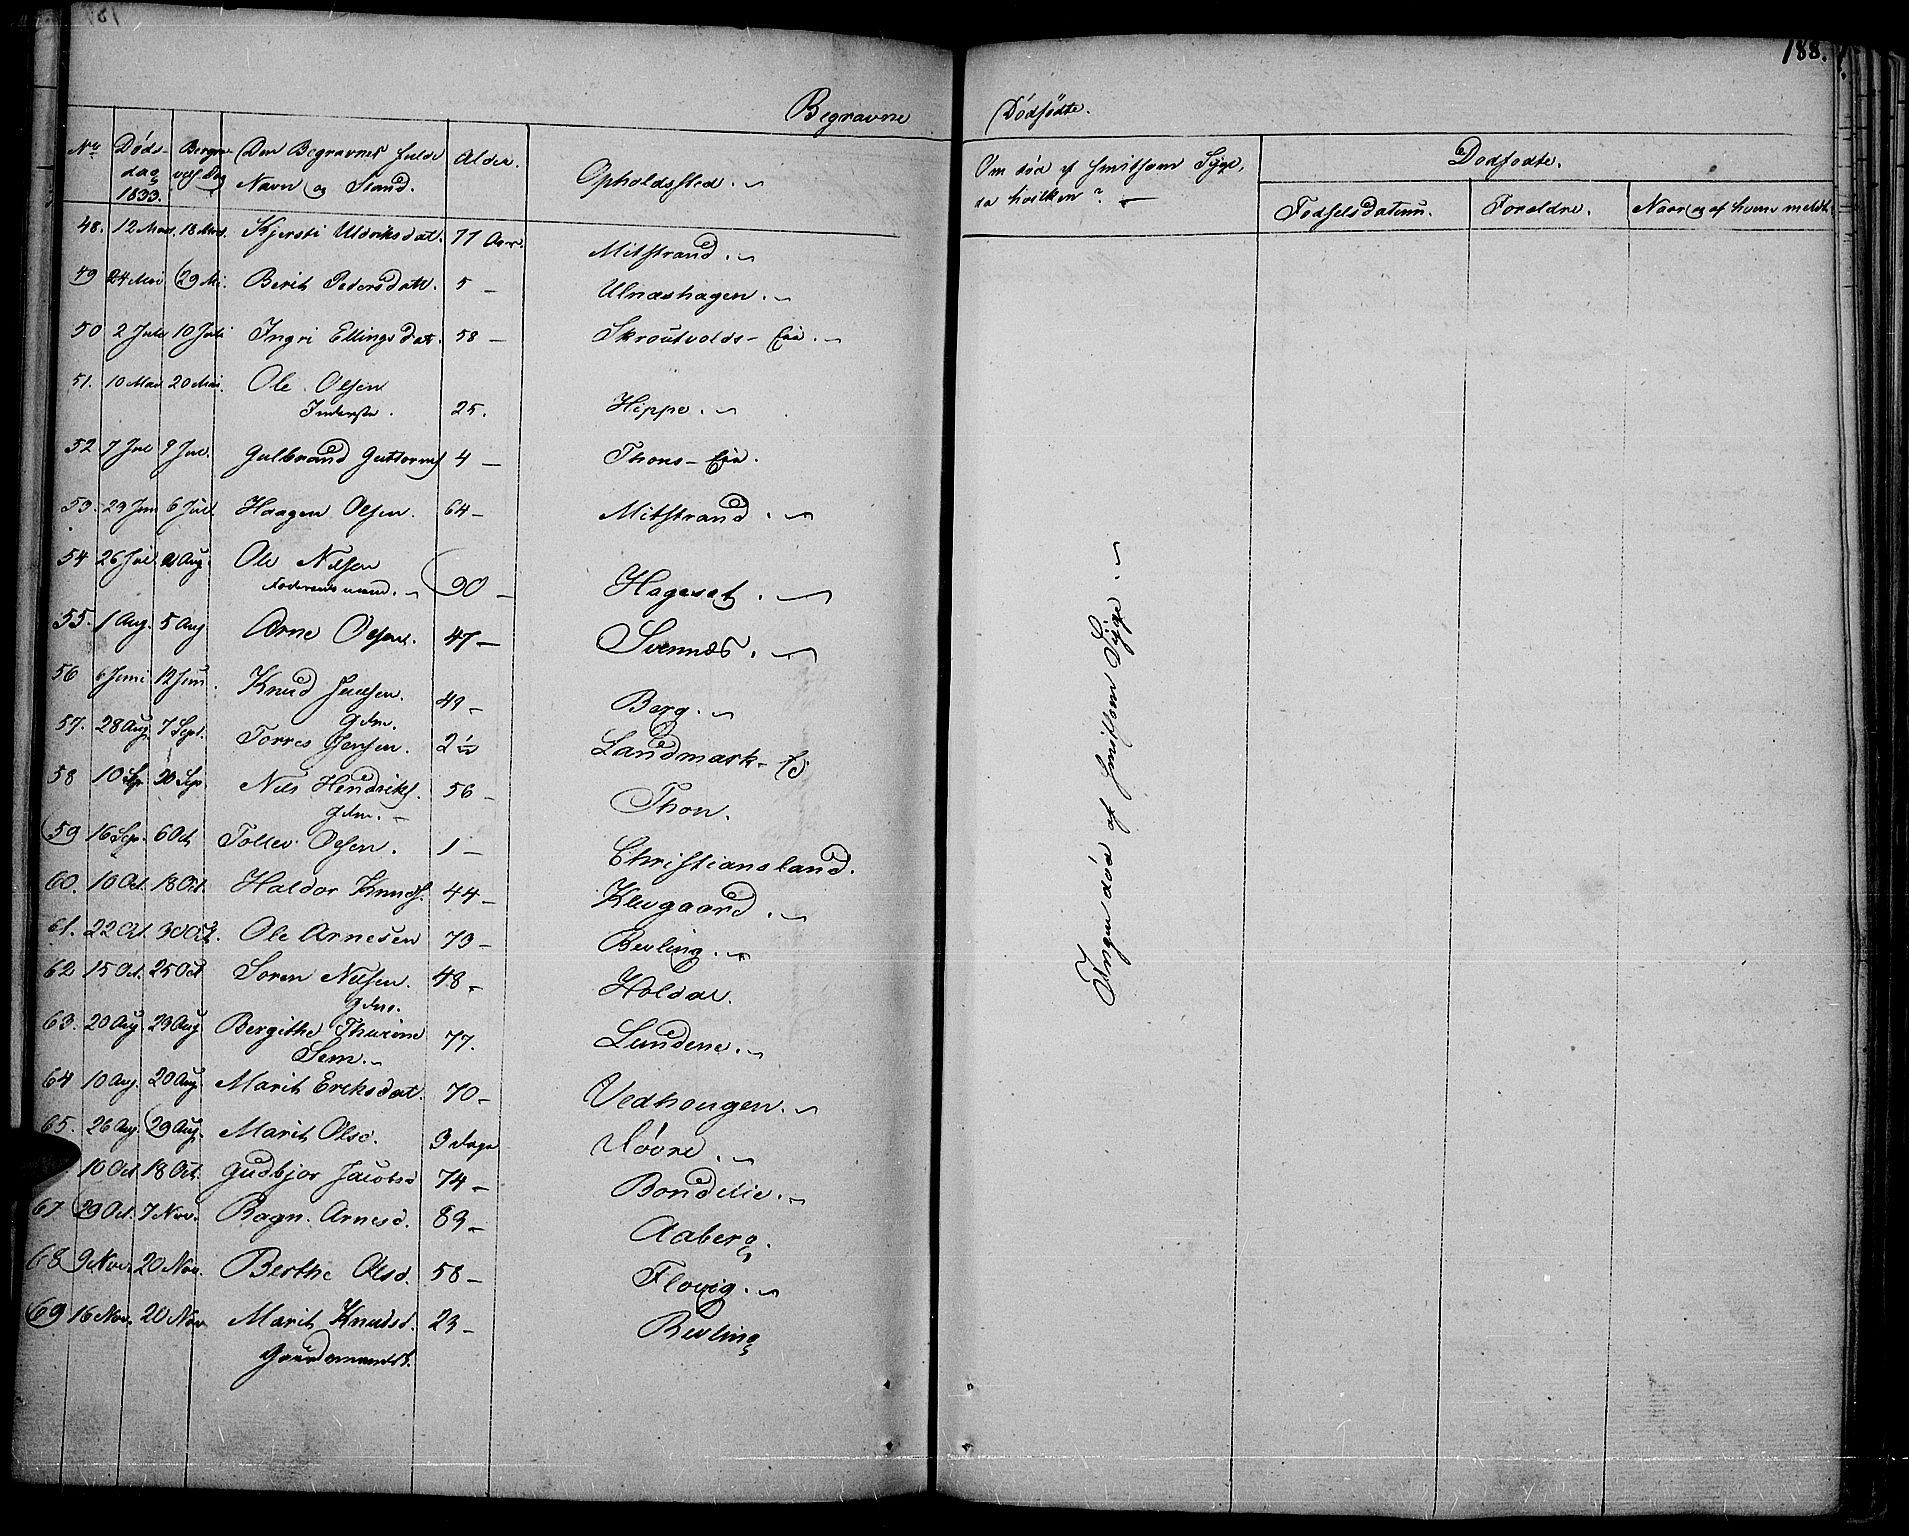 188.
Begravne
Dødfødte.
No Døds- dag 1833. Begra- vels. Dag Den Begravnes fulde Navn og Stand. Alder. Opholdssted.
Om død af smitsom Syge, da hvilken?
Dødfødte.
Fødselsdatum. Forældre. Naar og af hvem meldt.
48. 12 Mai 18 Mai. Kjersti Uldriksdat. 77 Aar. Mitstrand.
49 24 Mai 29 Mai. Berit Pedersdatt. 5 — Ulnæshagen.
50 2 Juli 10 Juli Ingri Ellingsdat. 58 — Skroutvolds- Eie.
51. 10 Mai 20 Mai. Ole Olsen
Inderste. 25. Hippe.
52 7 Jul 9 Jul. Gulbrand Guttorms. 4 — Thons- Eie.
53. 29 Jun 6 Jul. Haagen Olsen. 64 — Mitstrand.
54 26 Jul. 2 Aug. Ole Nilsen
Føderaadsmand. 90 — Hageset.
55. 1 Aug. 5 Aug Arne Olsen. 47 — Svennæs.
56 6 Juni 12 Jun. Knud
Gdm. 49 — Berg.
57. 28 Aug. 7 Sept. Torres Jensen. 2 Landmark-
58 10 Sep. 20 Sep. Nils Hendriks.
Gdm. 56 — Thon.
59 16 Sep. 6 Oct Tollev Olsen. 1 — Christiansland.
60. 10 Oct. 18 Oct. Haldor Knuds. 44 — Klevgaard.
61. 22 Oct. 30 Oct. Ole Arnesen 73 — Bevling.
62 15 Oct. 25 Oct. Soren Nilsen.
Gdm. 48 — Holdal.
63. 20 Aug. 29 Aug Bergithe Thurine
Sem. 77. Lundene.
64 10 Aug. 20 Aug. Marit Eriksdat. 70 — Vedhougen.
65. 26 Aug. 29 Aug. Marit Olsd. 3 dage Møvre.
10 Oct 18 Oct. Gudbjor Jacobsd 74 — Bondelie.
67. 29 Oct. 7 Nov. Ragn. Arnesd. 89 — Aaberg.
68 9 Nov. 20 Nov. Berthe Olsd. 58 — Flovig.
69 16 Nov. 20 Nov Marit Knudsd. 23 — Bevling
Gaardmandsk.
Ingen død af smitsom Syge.